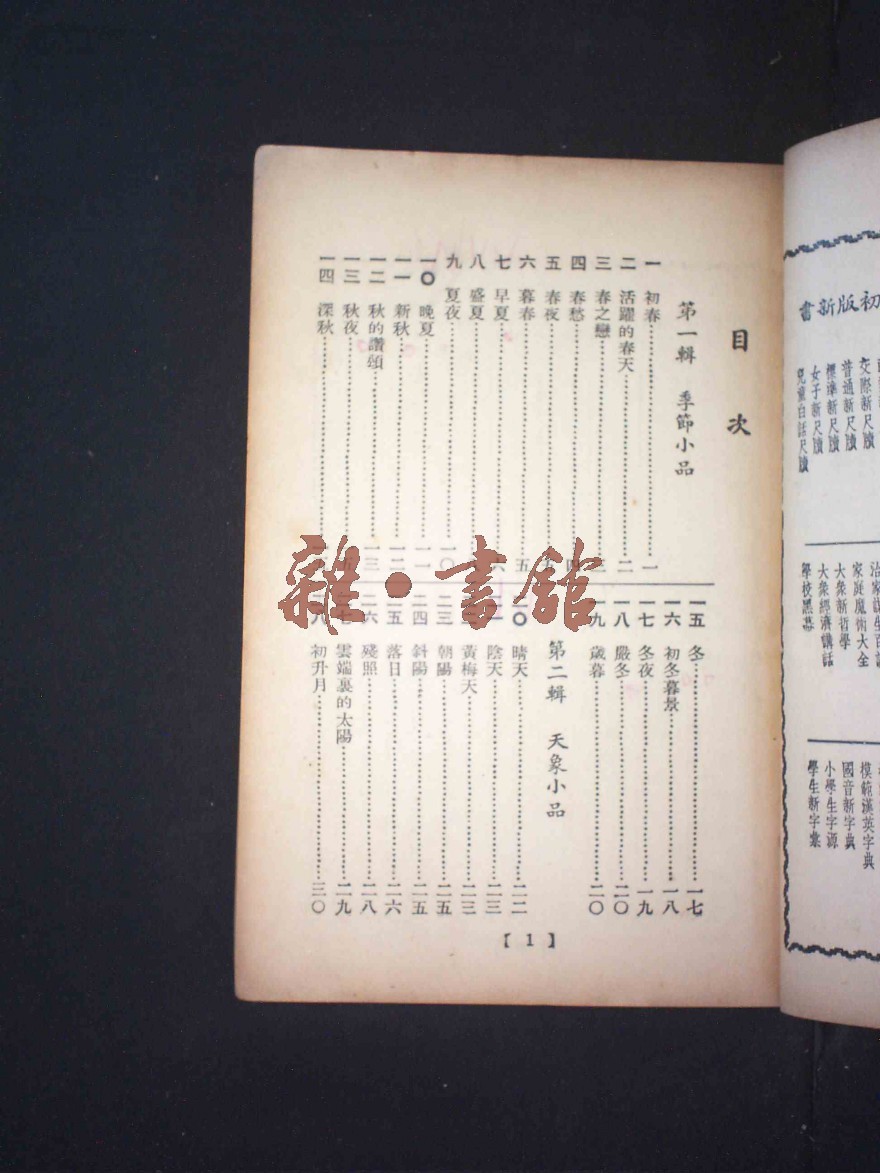 目次
第一輯 季節小品
一 初春 一
二 活躍的春天 二
三 春之戀 三
四 春愁 四
五 春夜 五
六 暮春 五
七 早夏 六
八 盛夏
九 夏夜 一〇
一〇 晚夏 一一
一一 新秋 一二
一二 秋的讚頌 一三
一三 秋夜
一四 深秋
一五 冬 一七
一六 初冬暮景 一八
一七 冬夜 一九
一八 嚴冬 二〇
一九 歲暮 二〇
第二輯 天象小品
二〇 晴天 二二
陰天 二三
黃梅天 二三
二三 朝陽 二五
二四 斜陽 二五
二五 落日 二六
二六 殘照 二八
雲端裏的太陽 二九
初升月 三〇
【1】
雜·書館
初版新書
交際新尺牘
普通新尺牘
標準新尺牘
女子新尺牘
兒童白話尺牘
家庭魔術大全
大衆新哲學
大衆經濟講話
學校黑幕
模範漢英字典
國音新字典
小學生字源
學生新字彙